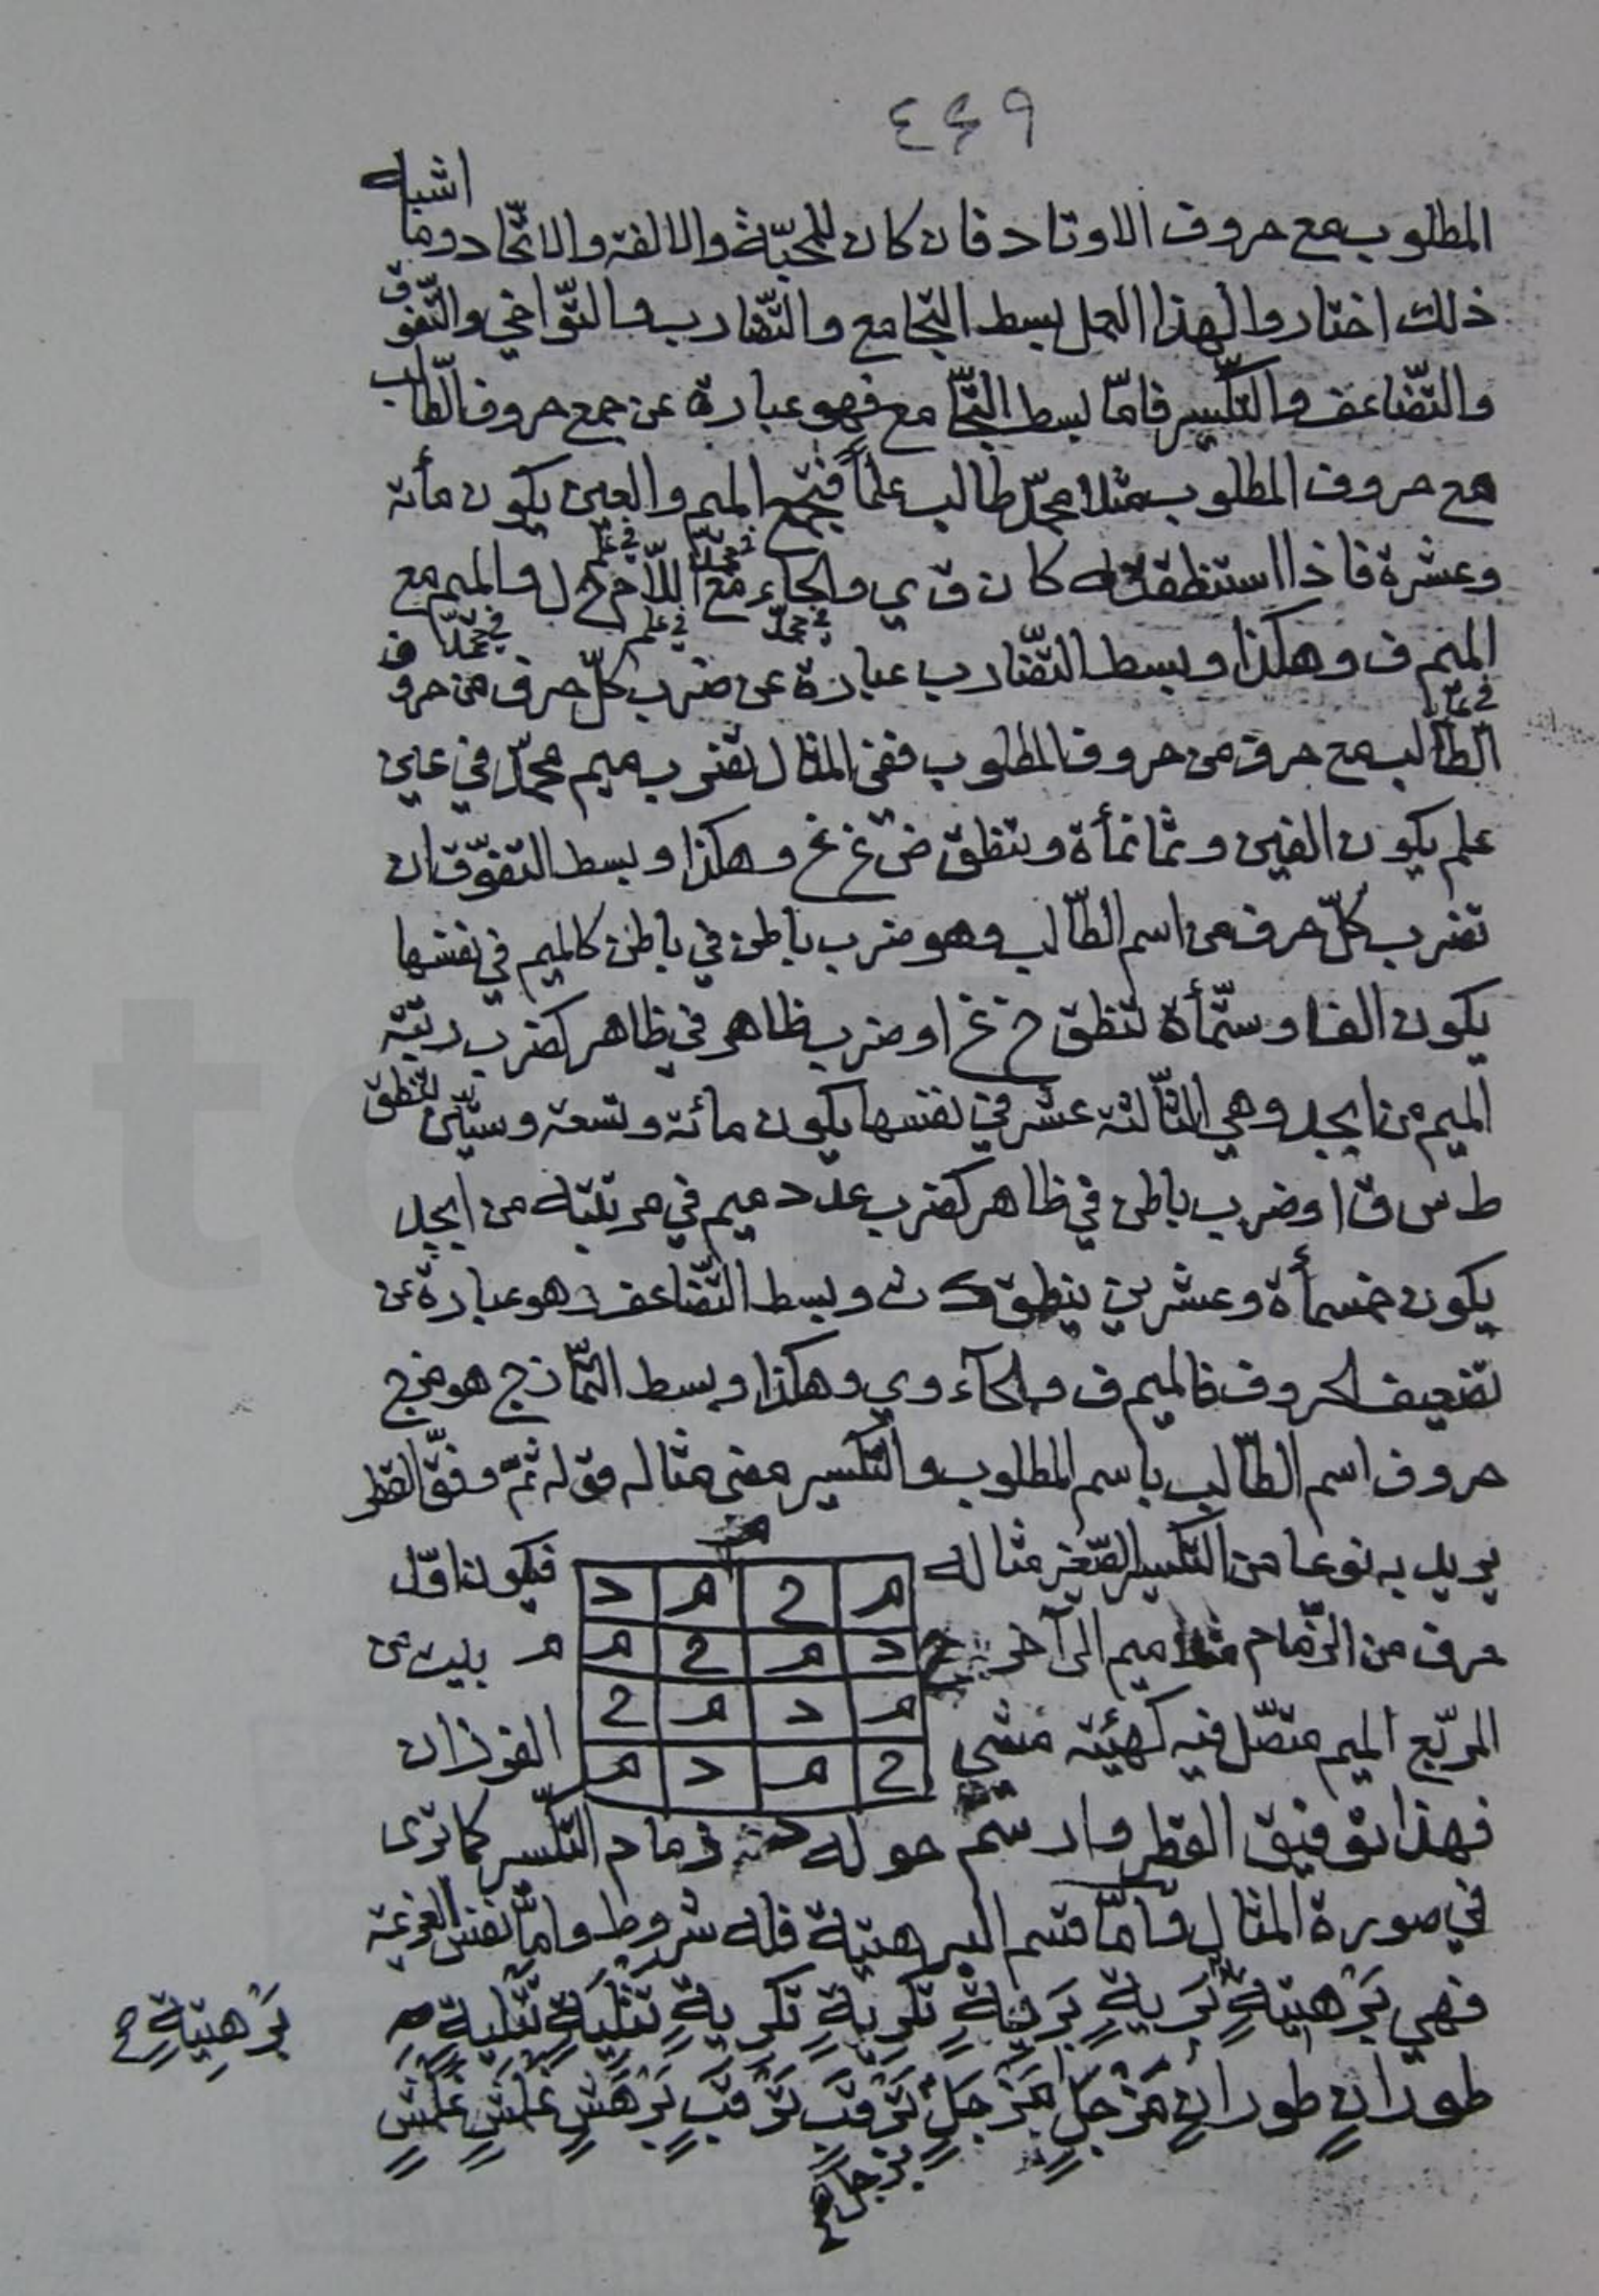 ٤٤٩
المطلوب مع حروف الاوتاد فان كان للمحبّة والالفة والاتّحاد وما اشبه
ذلك اختاروا لهذا العمل بسط التّجامع والتّضارب والتّواخي والتّفوّق
والتّضاعف والتّكسير فامّا بسط التّجامع فهو عبارة عن جمع حروف الطّالب
مع حروف المطلوب مثلا محمّد طالب علماً فتجمع الميم والعين يكون مأته
وعشرة فاذا استنطقته كان ق ي والحاء في محمّد مع اللّام في علم ح ل والميم مع
في محمّد في علم في محمّد
الميم ف وهكذا وبسط التّضارب عبارة عن ضرب كلّ حرف من حروف
الطّالب مع حرف من حروف المطلوب ففي المثال تضرب ميم محمّد في عين
علم يكون الفين وثمانمأة وتنطق ض غ غ وهكذا وبسط التّفوّق ان
تضرب كلّ حرف من اسم الطّالب وهو ضرب باطن في باطن كالميم في نفسها
يكون الفا وستّمأة تنطق خ غ او ضرب ظاهر في ظاهر كضرب رتبة
الميم من ابجد وهي الثّالثة عشر في نفسها يكون مائة وتسعة وستّين تنطق
ط س ق او ضرب باطن في ظاهر كضرب عدد ميم في مرتبته من ابجد
يكون خمسمأة وعشرين ينطق ك ث وبسط التّضاعف هو عبارة عن
تضعيف الحروف فالميم ف والحاء وي وهكذا وبسط التّمازج هو مزج
حروف اسم الطّالب باسم المطلوب والتّكسير مضى مثاله قوله ثمّ وفّق القطر
يريد به نوعا من التّكسير الصّغير مثاله
م ح م د
فيكون اوّل
حرف من الزّمام ميم الى آخر
د م ح م
م بيت من
المربّع الميم متصّل فيه كهيئة مشي
م د م ح
الفرزان
ح م د م
فهذا توفيق القطر وارسم حوله زمام التّكسير كما ترى
في صورة المثال وامّا قسم البرهتية فله شروط وامّا نفس العزيمة
فهي بَرْهَتِيَةٍ كَرِيةٍ تَتْلِيَةٍ تَتْلِيةٍ
بَرْهِتِيَةٍ
طوران طوران مَزْجَلٍ مَزْجَلٍ تَرْقَبٍ تَرْقَبٍ بَرْهَشٍ غَلْمَشٍ غَلْمَشٍ
بزجل